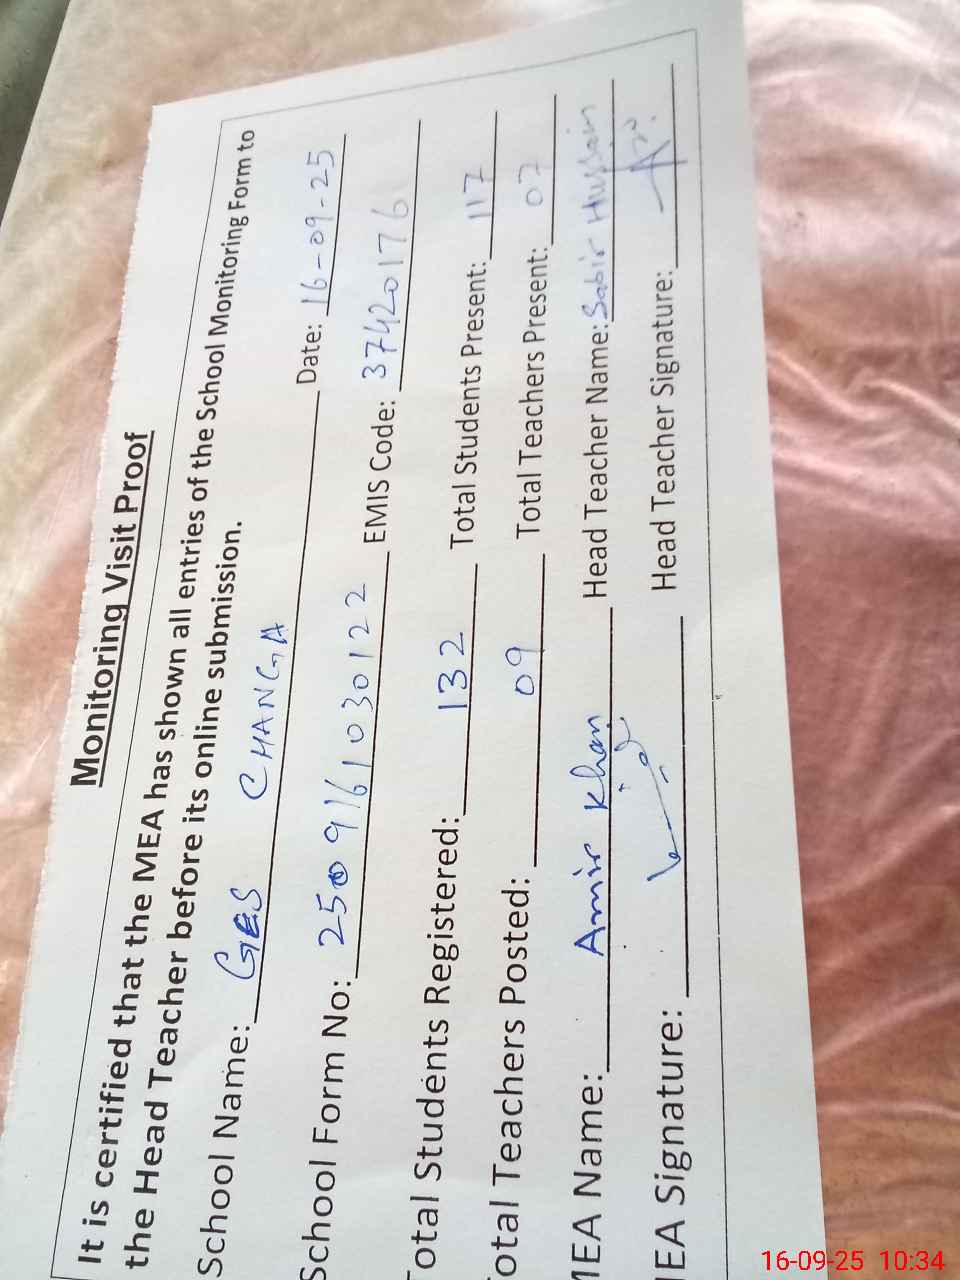 Monitoring Visit Proof
It is certified that the MEA has shown all entries of the School Monitoring Form to
the Head Teacher before its online submission.
School Name: GES CHANGA Date: 16-09-25
School Form No: 2509161030122 EMIS Code: 37420176
Total Students Registered: 132 Total Students Present: 117
Total Teachers Posted: 09 Total Teachers Present: 07
MEA Name: Amir Khan Head Teacher Name: Sabir Hussain
MEA Signature: Head Teacher Signature:
16-09-25 10:34